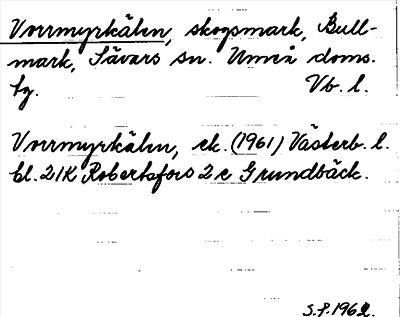 Vorrmyrkälen, skogsmark, Bull-
mark, Sävars sn. Umeå doms.
tg. Vb. l.
Vorrmyrkälen, ek. (1961) Västerb. l.
bl. 21K Robertsfors 2 c Grundbäck.
S.P. 1962.